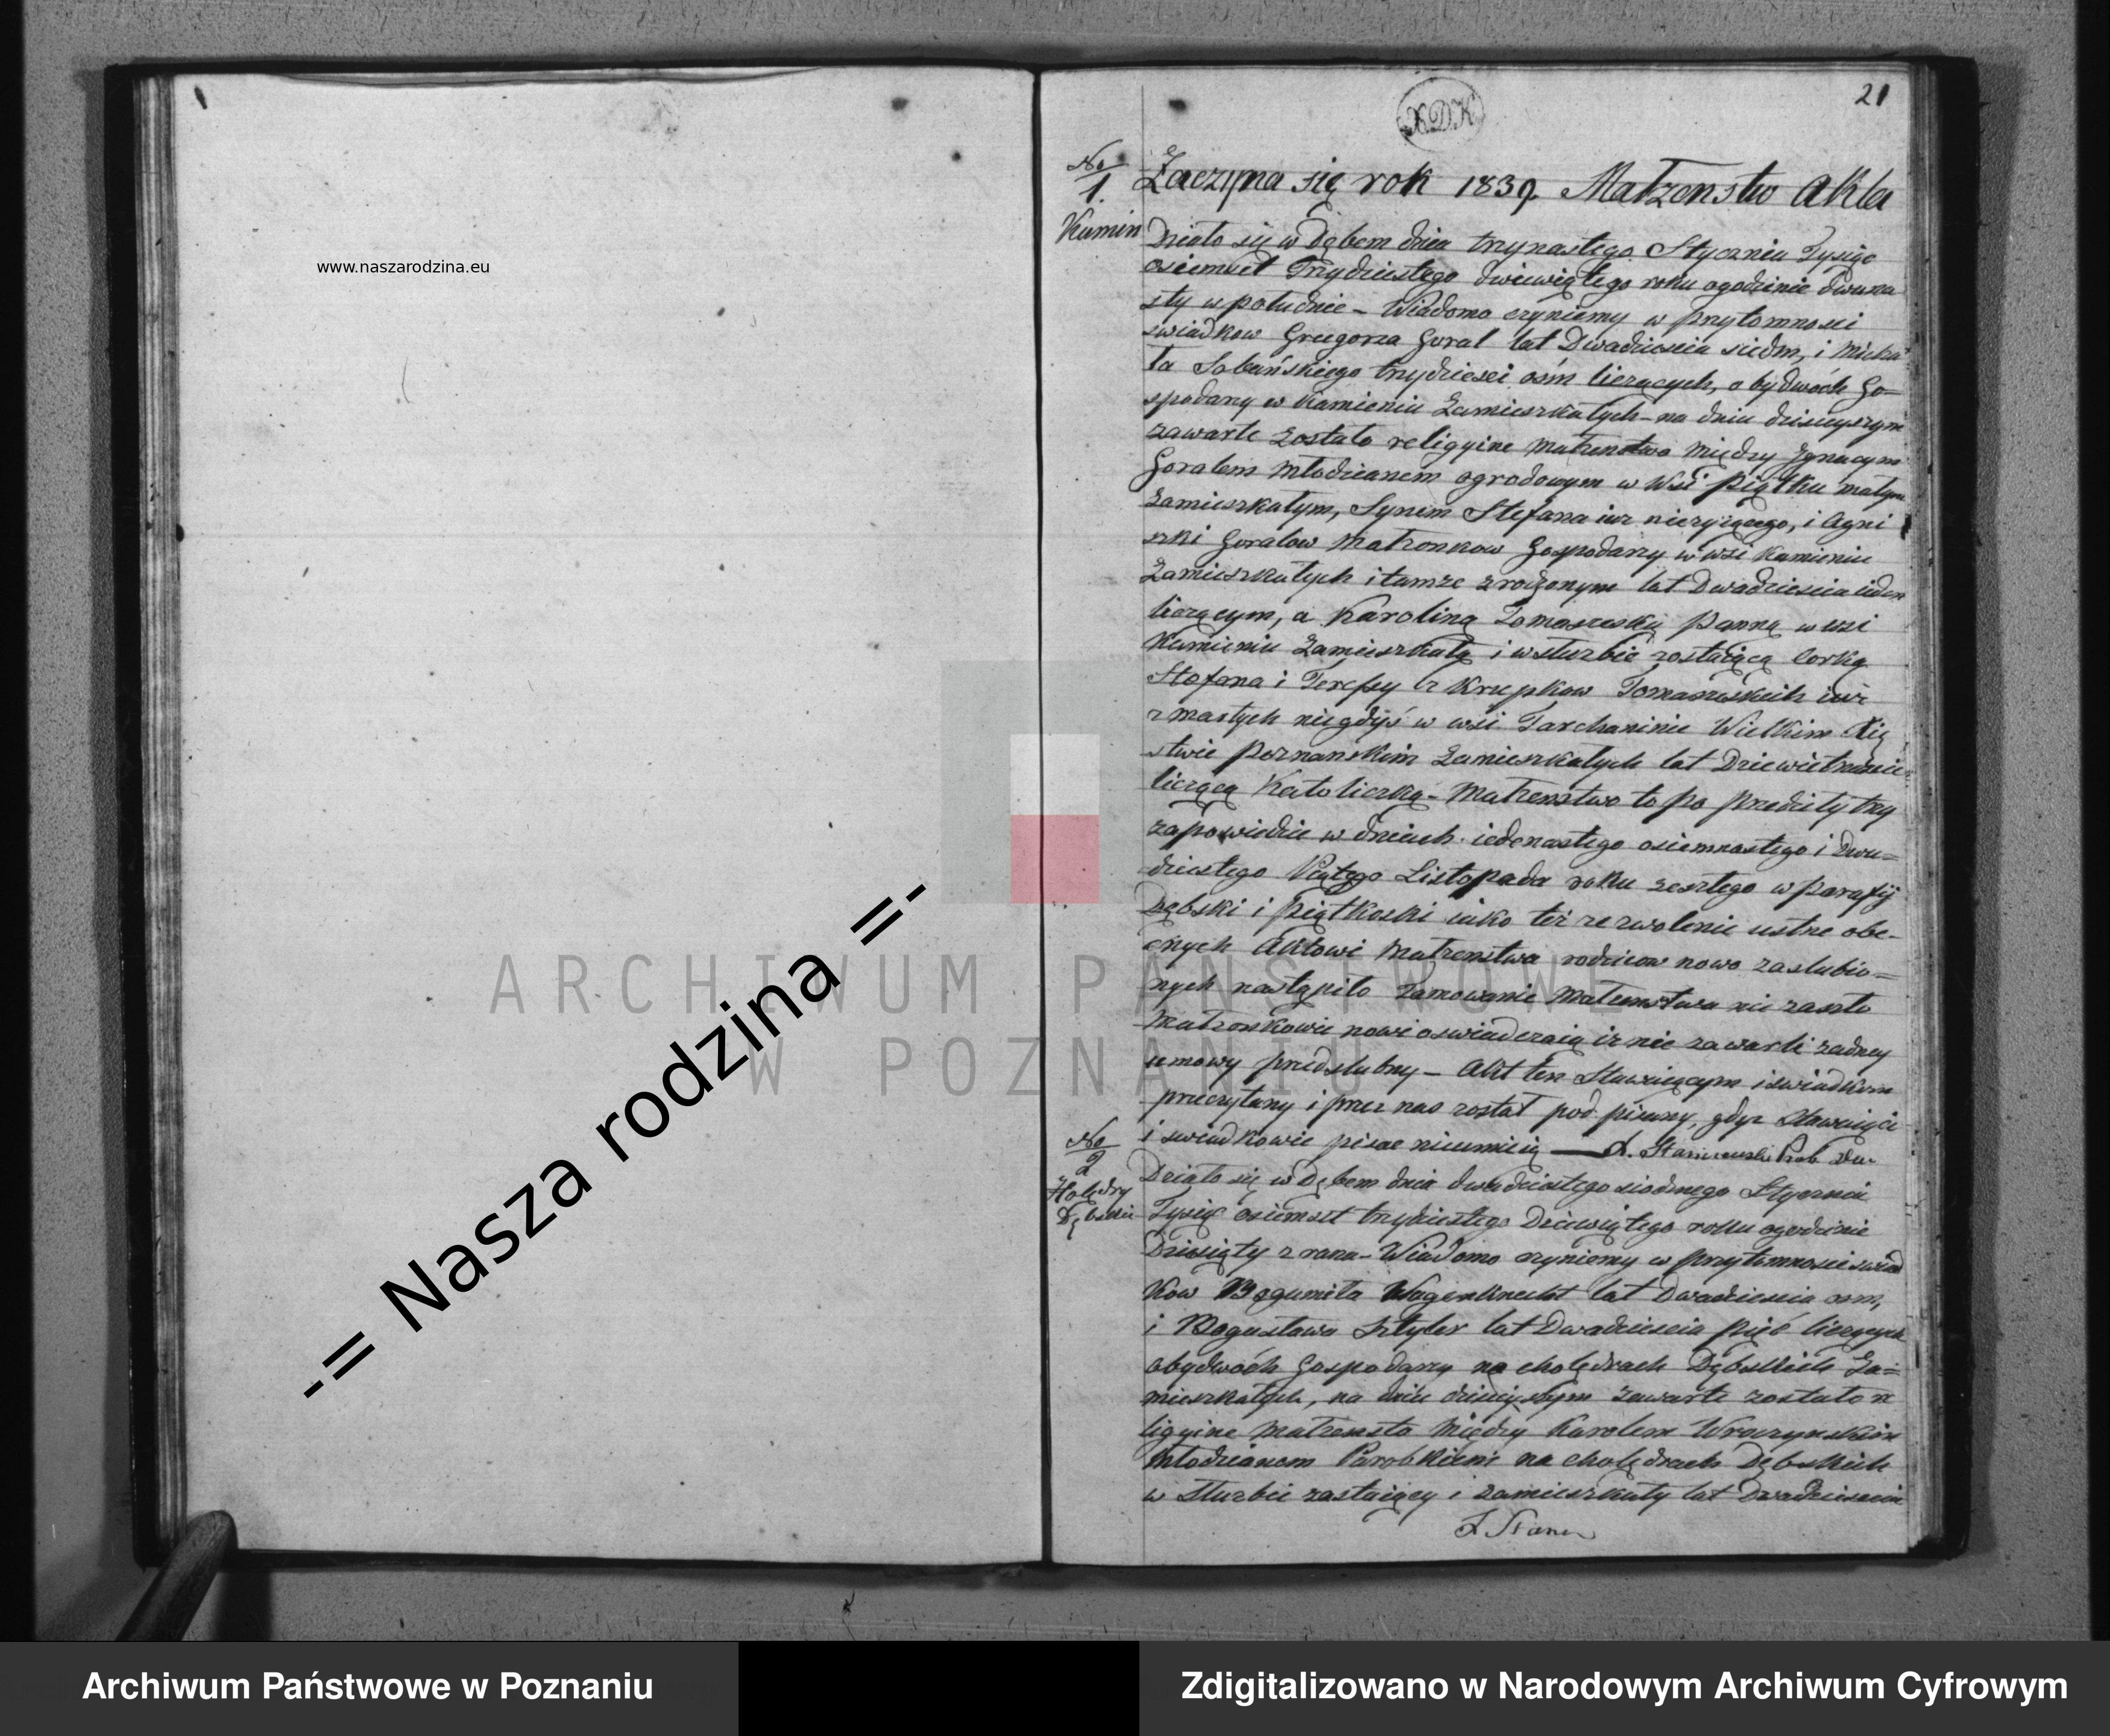 21
XDK
No
1.
Zaczyna się rok 1839. Małzenstwo Akta
Kamin
Działo się w Dębem dnia trzynastego Stycznia Tysiąc
osiemset Trzydziestego dziewiątego roku ogodzinie dwuna
sty w południe – Wiadomo czyniemy w przytomnosci
swiadkow Grzegorza Goral lat Dwadziescia siedm, i Micha
ła Sobańskiego trzydziesci ośm liczących, obydwóch Go–
spodarzy w Kamieniu Zamieszkałych – na dniu dzisieyszym
zawarte Zostało religyine Małzenstwo Między Ignacym
Goralem Młodzianem ogrodowym w Wsi Piątku małym
Zamieszkałym, Synem Stefana iuz niezyiącego, i Agni
szki Goralow Małzonkow Gospodarzy w wsi Kamieniu
Zamieszkałych i tamze zrodzonym lat Dwadziescia ieden
liczącym, a Karoliną Tomaszeską Panną w wsi
Kamieniu Zamieszkałą i w słuzbie zostaiącą Corką
Stefana i Teressy z Krupkow Tomaszewskich iuż
zmarłych niegdyś w wsi Tarchaninie Wielkim Xię
stwie Poznanskim Zamieszkałych lat Dziewietnascie
liczącą Katoliczką – Małzenstwo to po przedziły trzy
zapowiedzie w dniach iedenastego osiemnastego i Dwu=
dziestego Piątego Listopada roku zeszłego w Parafij
Dębski i Piątkoski iako też zezwolenie ustne obe–
cnych Aktowi Małzenstwa rodzicow nowo zaslubio=
nych nastąpiło Tamowanie Małzenstwa nie zaszło
Małzonkowie nowi oswiadczaią iz nie zawarli zadney
umowy przedslubny – Akt ten Stawaiącym i swiadkom
przeczytany i przez nas został pod pisany, gdyz Stawaiący
i swiadkowie pisac nieumieią — X. Staniszewski Prob.
No
2
Holędry
Dębskie
Działo się w Dębem dnia dwudziestego siodmego Stycznia
Tysiąc osiemset trzydziestego Dziewiątego roku ogodzinie
Dziesiąty z rana – Wiadomo czyniemy w przytomnosci swiad
kow Bogumiła Wagenknecht lat Dwadziescia osm,
i Bogusława Sztyler lat Dwadziescia pięć liczących
obydwóch Gospodarzy na cholędrach Dębskich Za=
mieszkałych, na dniu dzisieyszym zawarte zostało re
ligyine Małzensto Między Karolem Wroczynskim
Młodzianem Parobkiem na cholędrach Dębskich
w Słuzbie zostaiący i zamieszkały lat Dwadziescia
X Stan
www.naszarodzina.eu
-= Nasza rodzina =-
ARCHIWUM PAŃSTWOWE
W POZNANIU
Archiwum Państwowe w Poznaniu
Zdigitalizowano w Narodowym Archiwum Cyfrowym